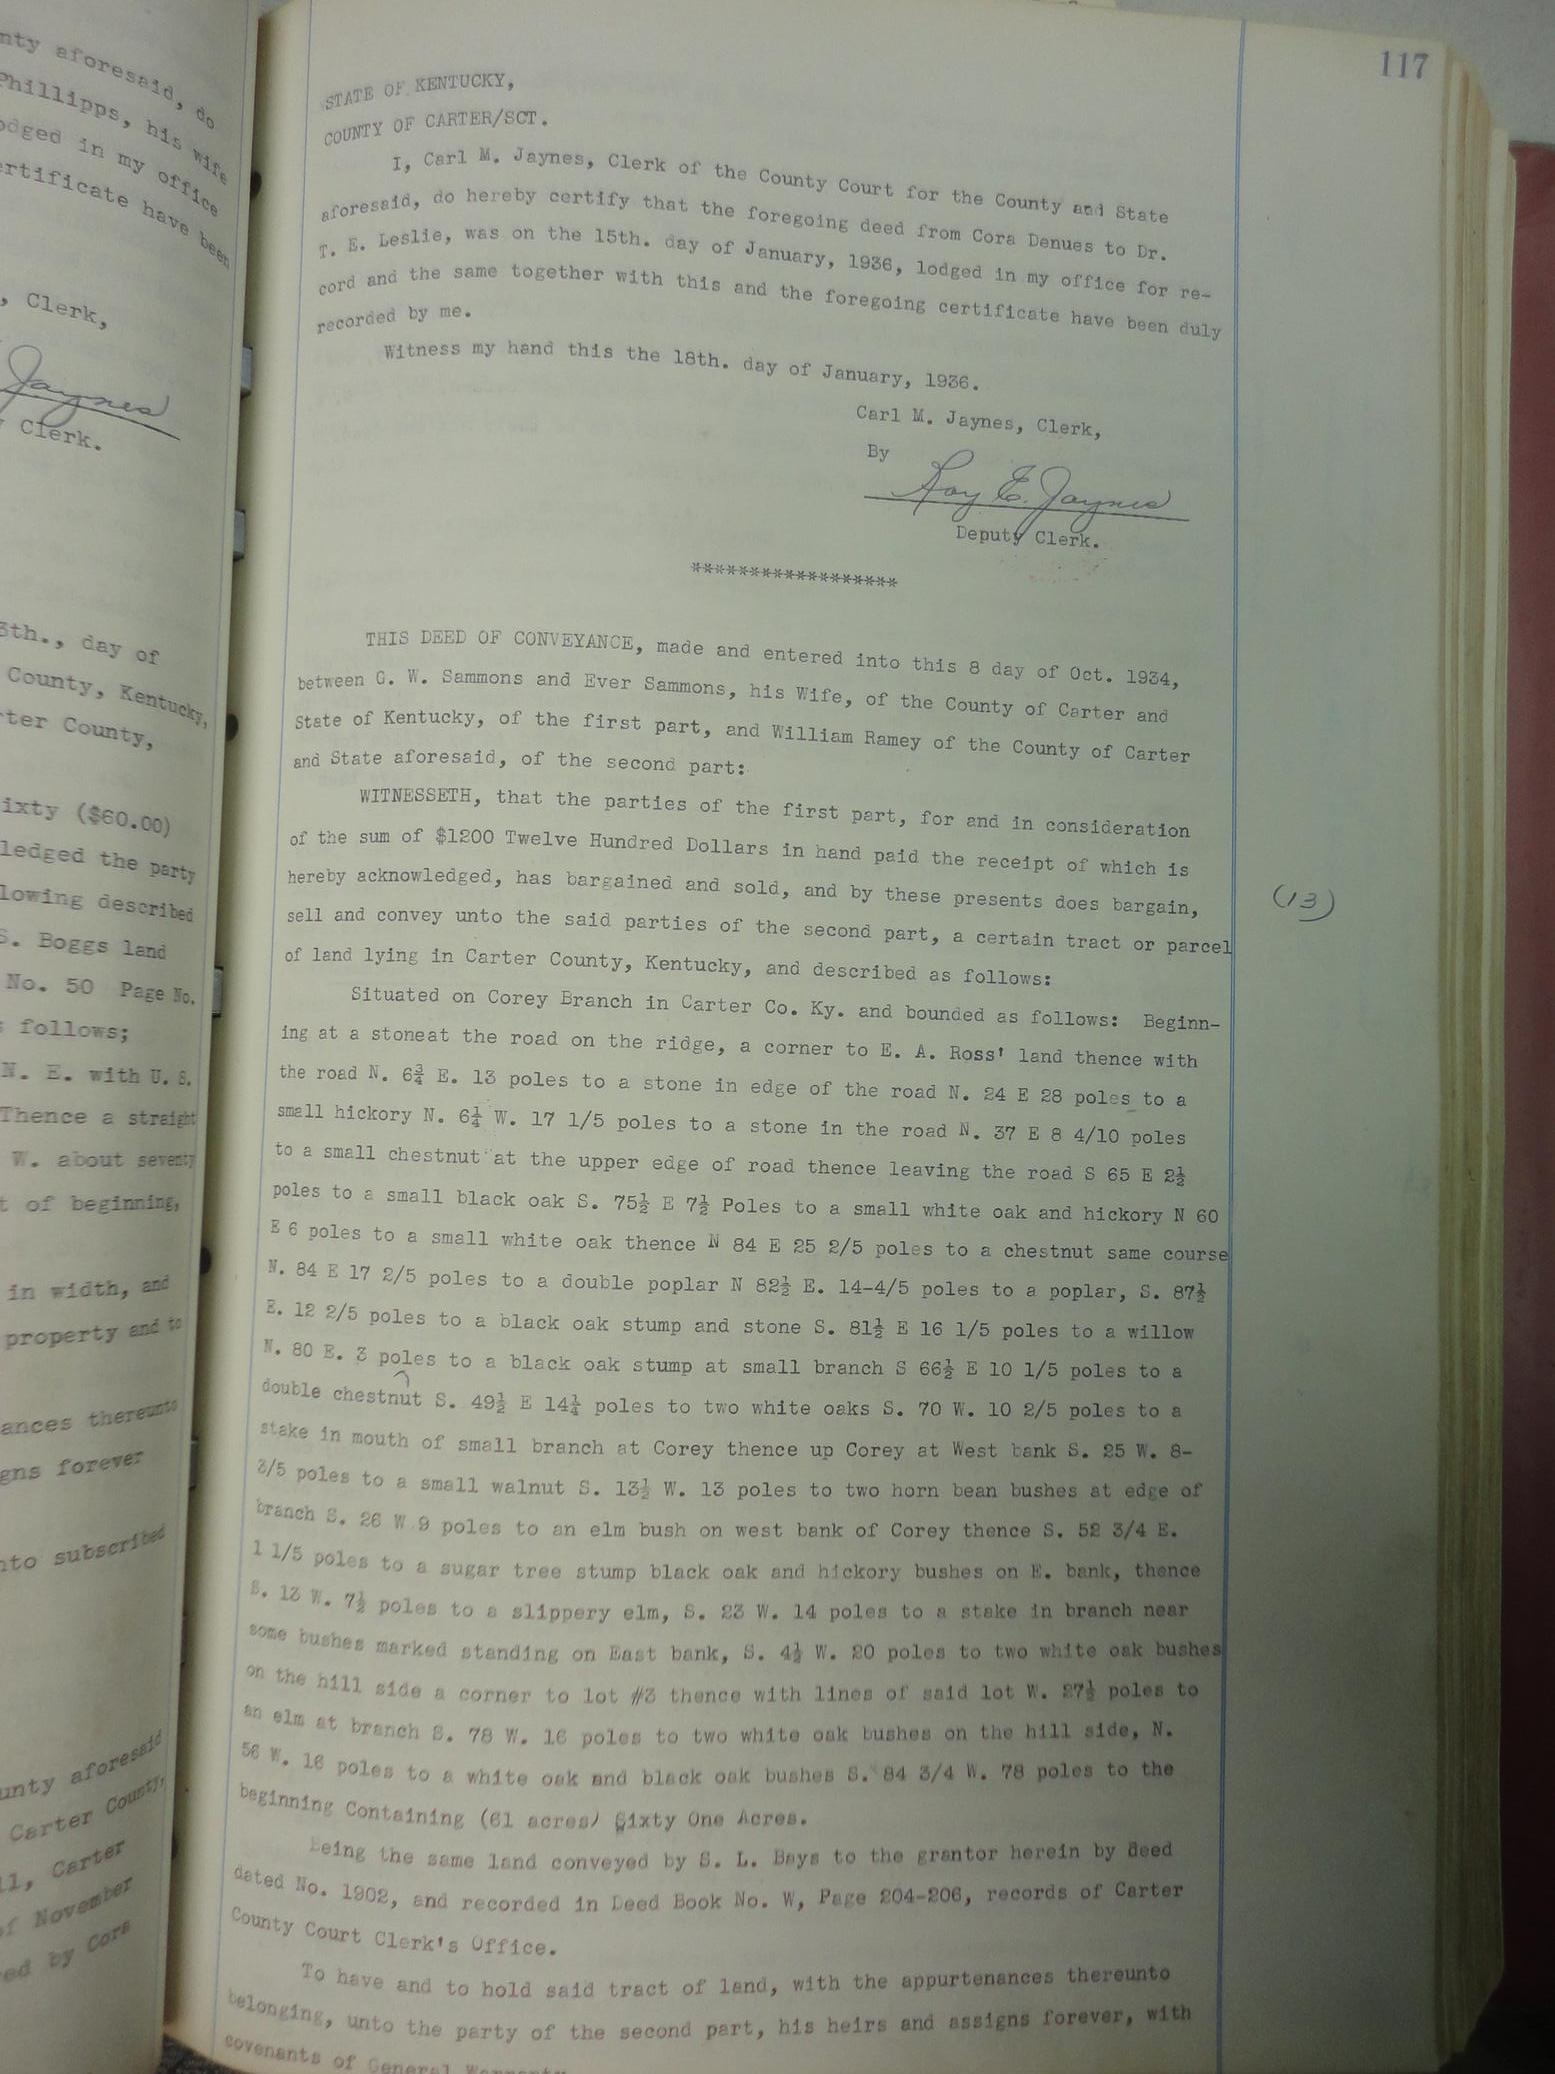 nty aforesaid, do
Phillipps, his wife
odged in my office
ertificate have been
, Clerk,
Jaynes
Clerk.
3th., day of
County, Kentucky,
rter County,
ixty ($60.00)
ledged the party
lowing described
S. Boggs land
No. 50 Page No.
s follows;
N. E. with U. S.
Thence a straight
W. about seventy
t of beginning,
in width, and
property and to
ances thereunto
gns forever
nto subscribed
unty aforesaid
Carter County,
ll, Carter
of November
ed by Cora
117
STATE OF KENTUCKY,
COUNTY OF CARTER/SCT.
I, Carl M. Jaynes, Clerk of the County Court for the County and State
aforesaid, do hereby certify that the foregoing deed from Cora Denues to Dr.
T. E. Leslie, was on the 15th. day of January, 1936, lodged in my office for re-
cord and the same together with this and the foregoing certificate have been duly
recorded by me.
Witness my hand this the 18th. day of January, 1936.
Carl M. Jaynes, Clerk,
By
Roy E. Jaynes
Deputy Clerk.
******************
THIS DEED OF CONVEYANCE, made and entered into this 8 day of Oct. 1934,
between G. W. Sammons and Ever Sammons, his Wife, of the County of Carter and
State of Kentucky, of the first part, and William Ramey of the County of Carter
and State aforesaid, of the second part:
WITNESSETH, that the parties of the first part, for and in consideration
of the sum of $1200 Twelve Hundred Dollars in hand paid the receipt of which is
hereby acknowledged, has bargained and sold, and by these presents does bargain,
sell and convey unto the said parties of the second part, a certain tract or parcel
of land lying in Carter County, Kentucky, and described as follows:
(13)
Situated on Corey Branch in Carter Co. Ky. and bounded as follows: Beginn-
ing at a stoneat the road on the ridge, a corner to E. A. Ross' land thence with
the road N. 6¾ E. 13 poles to a stone in edge of the road N. 24 E 28 poles to a
small hickory N. 6¼ W. 17 1/5 poles to a stone in the road N. 37 E 8 4/10 poles
to a small chestnut at the upper edge of road thence leaving the road S 65 E 2½
poles to a small black oak S. 75½ E 7½ Poles to a small white oak and hickory N 60
E 6 poles to a small white oak thence N 84 E 25 2/5 poles to a chestnut same course
N. 84 E 17 2/5 poles to a double poplar N 82½ E. 14-4/5 poles to a poplar, S. 87½
E. 12 2/5 poles to a black oak stump and stone S. 81½ E 16 1/5 poles to a willow
N. 80 E. 3 poles to a black oak stump at small branch S 66½ E 10 1/5 poles to a
double chestnut S. 49½ E 14¼ poles to two white oaks S. 70 W. 10 2/5 poles to a
stake in mouth of small branch at Corey thence up Corey at West bank S. 25 W. 8-
3/5 poles to a small walnut S. 13½ W. 13 poles to two horn bean bushes at edge of
branch S. 26 W 9 poles to an elm bush on west bank of Corey thence S. 52 3/4 E.
1 1/5 poles to a sugar tree stump black oak and hickory bushes on E. bank, thence
S. 13 W. 7½ poles to a slippery elm, S. 23 W. 14 poles to a stake in branch near
some bushes marked standing on East bank, S. 4½ W. 20 poles to two white oak bushes
on the hill side a corner to lot #3 thence with lines of said lot W. 27½ poles to
an elm at branch S. 78 W. 16 poles to two white oak bushes on the hill side, N.
56 W. 16 poles to a white oak and black oak bushes S. 84 3/4 W. 78 poles to the
beginning Containing (61 acres) Sixty One Acres.
Being the same land conveyed by S. L. Bays to the grantor herein by deed
dated No. 1902, and recorded in Deed Book No. W, Page 204-206, records of Carter
County Court Clerk's Office.
To have and to hold said tract of land, with the appurtenances thereunto
belonging, unto the party of the second part, his heirs and assigns forever, with
covenants of General Warranty